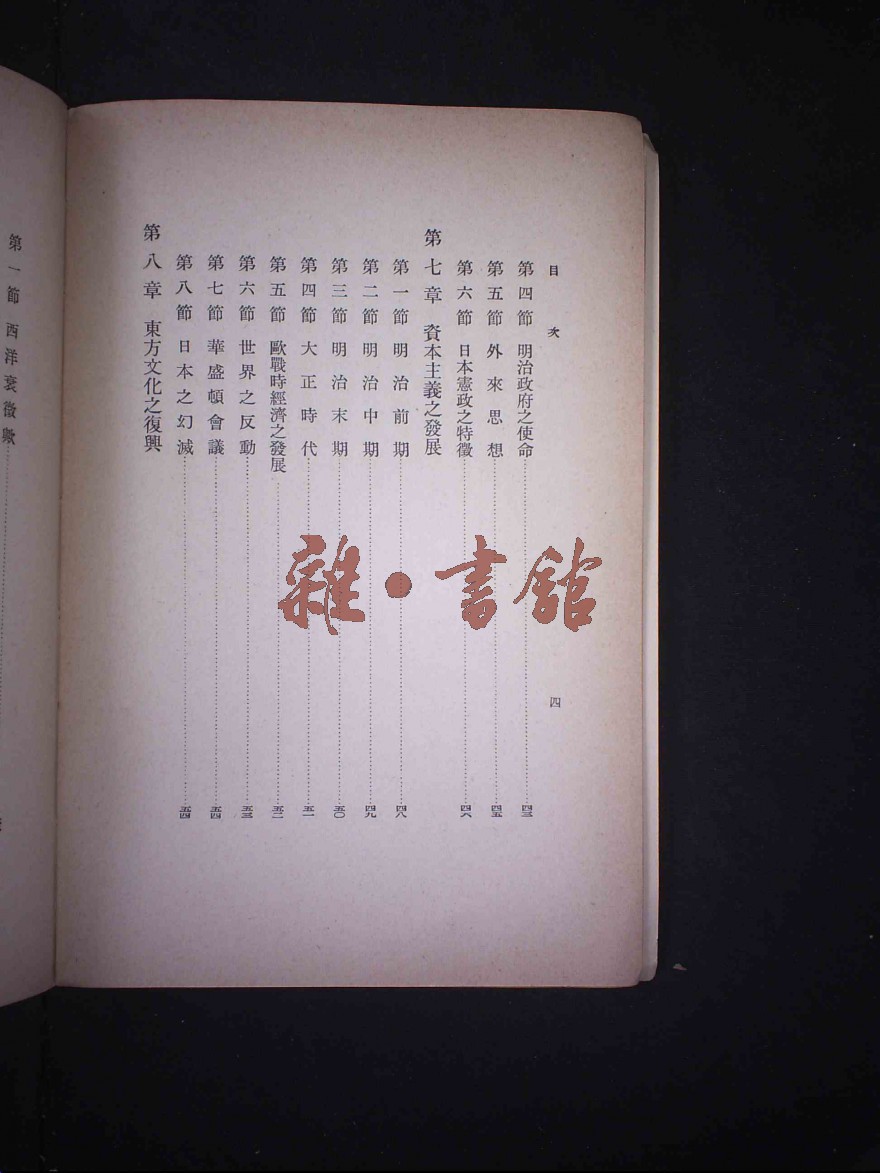 目次 四
第四節 明治政府之使命 四三
第五節 外來思想 四五
第六節 日本憲政之特徵 四六
第七章 資本主義之發展
第一節 明治前期 四八
第二節 明治中期 四九
第三節 明治末期 五〇
第四節 大正時代 五一
第五節 歐戰時經濟之發展 五二
第六節 世界之反動 五三
第七節 華盛頓會議 五四
第八節 日本之幻滅 五四
第八章 東方文化之復興
第一節 西洋衰徵歟
雜·書館